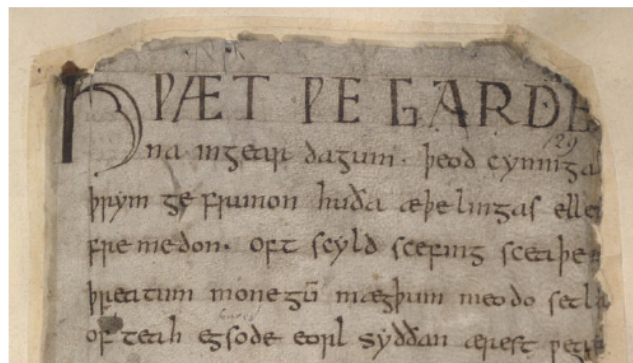 HǷÆT ǷE GARDE
na in gear dagum · þeod cyninga
þrym ge frunon huða æþelingas elle
fremedon · oft scyld scefing sceaþe
þreatum monegū mægþum meodo setla
of teah egsode eorl syððan ærest